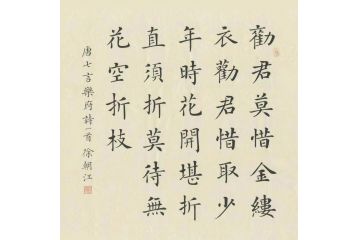 勸君莫惜金縷
衣勸君惜取少
年時花開堪折
直須折莫待無
花空折枝
唐七言樂府詩一首 徐朝江